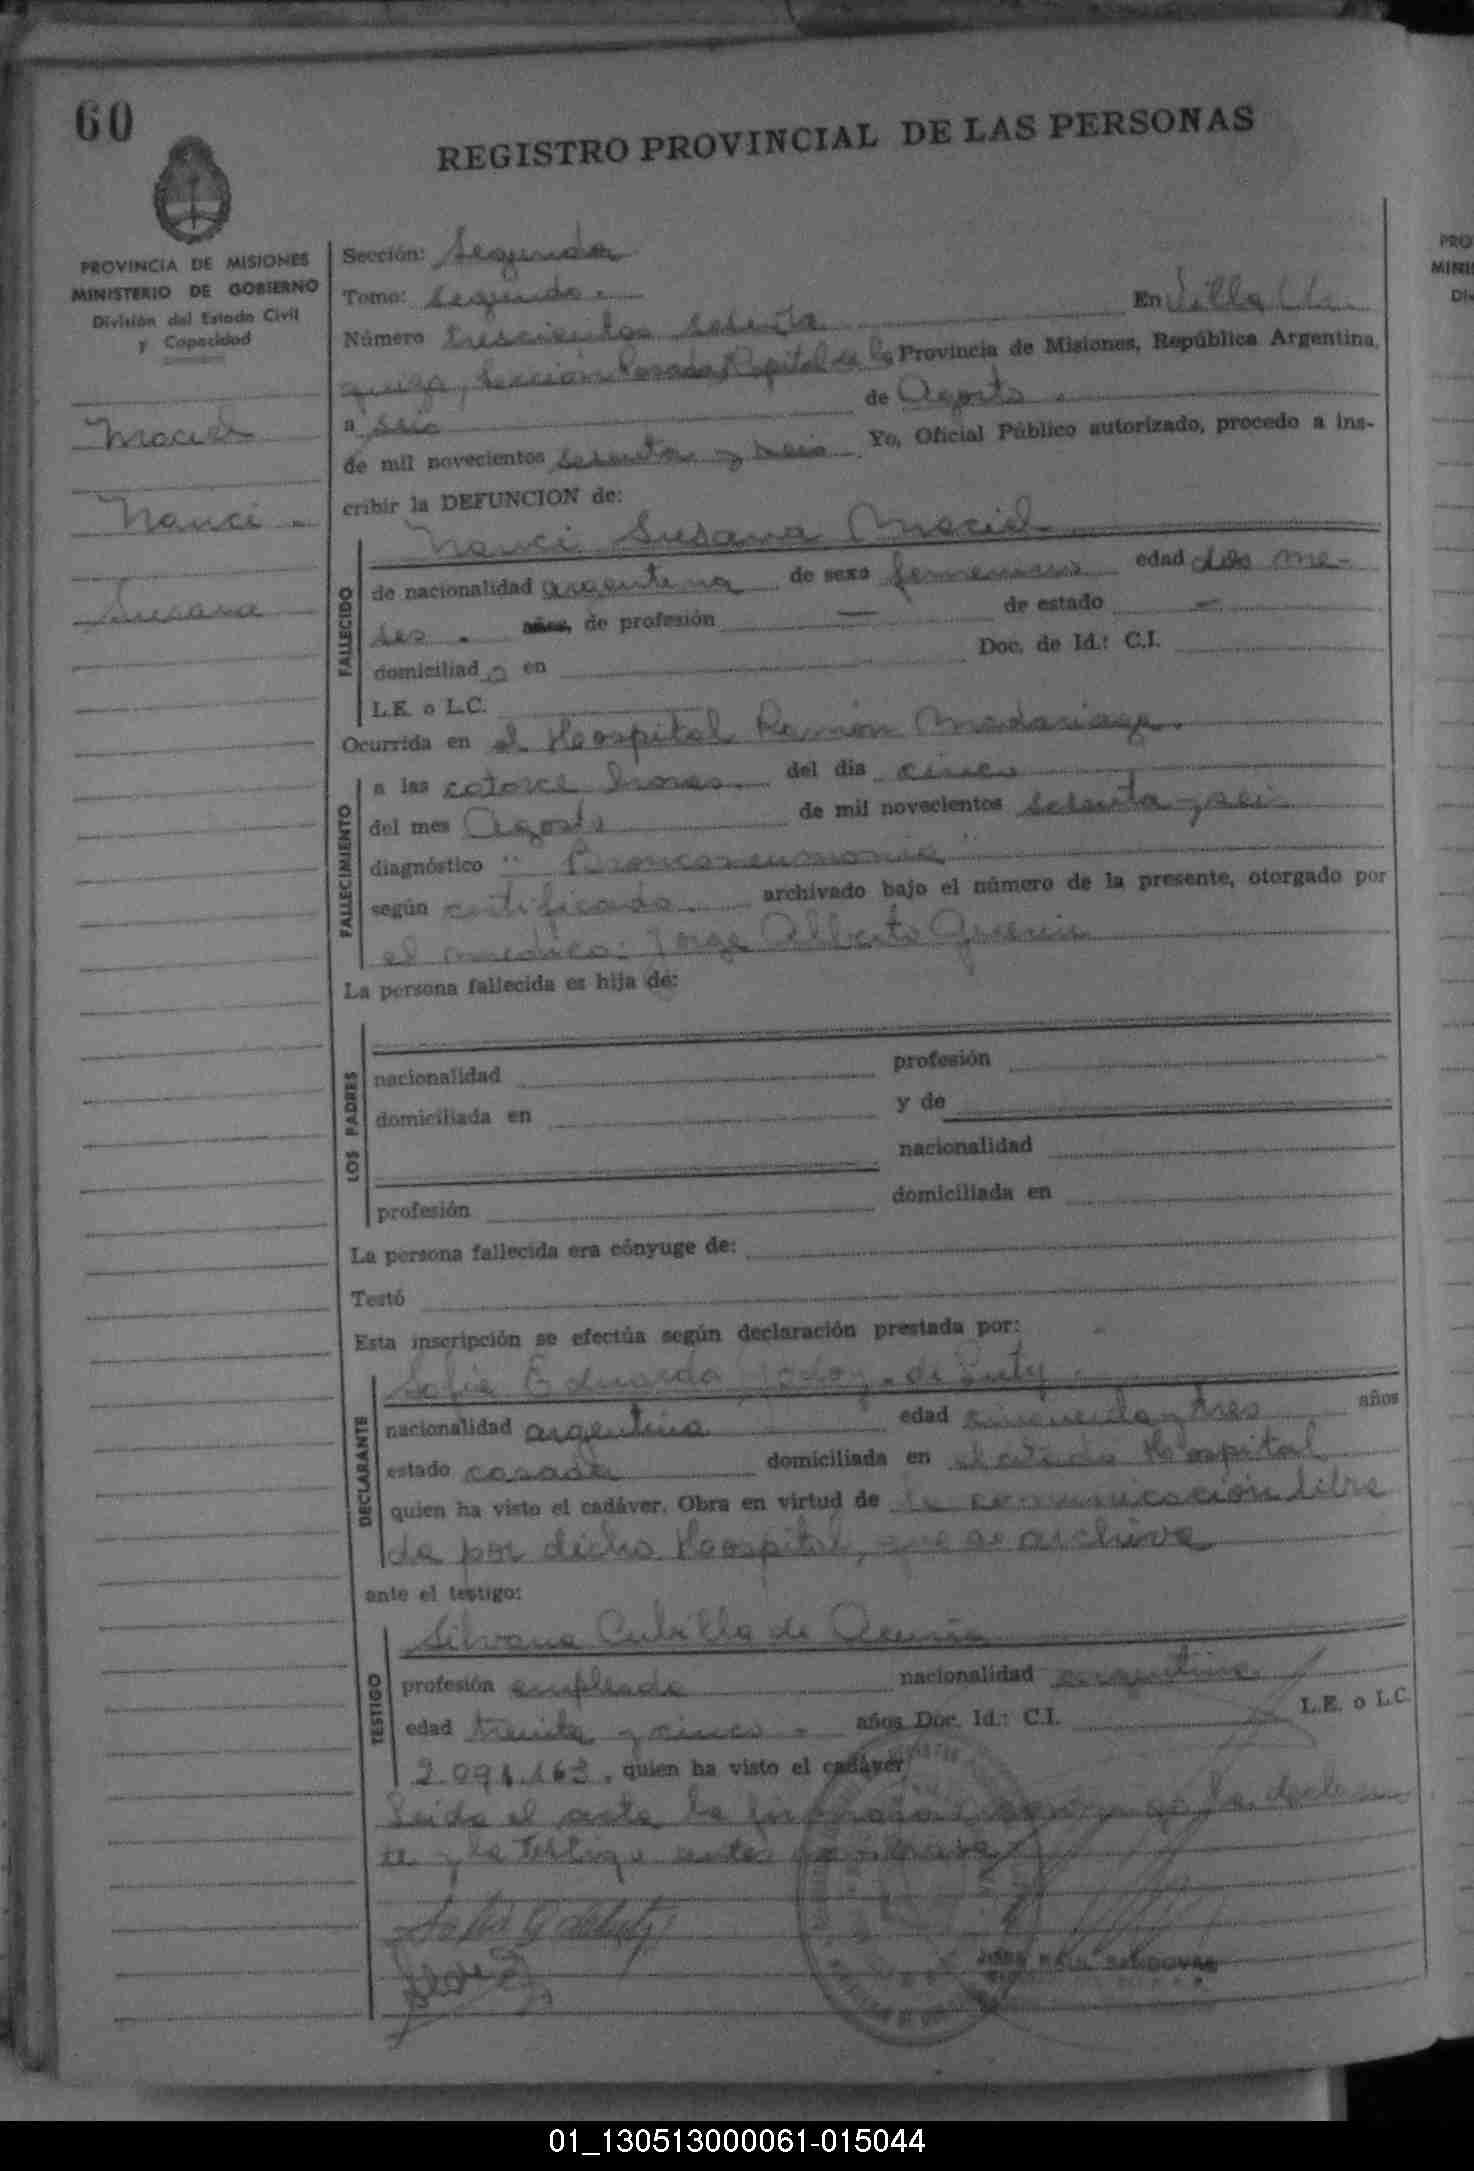 60
REGISTRO PROVINCIAL DE LAS PERSONAS
PROVINCIA DE MISIONES
MINISTERIO DE GOBIERNO
División del Estado Civil
y Capacidad
Maciel
Nanci
Susana
Sección: Segunda
Tomo: Segundo.
Número trescientos sesenta En Villa Ur
quiza, Sección Posadas Capital de la Provincia de Misiones, República Argentina,
a seis de Agosto.
de mil novecientos sesenta y seis Yo, Oficial Público autorizado, procedo a ins-
cribir la DEFUNCION de:
Nanci Susana Maciel
FALLECIDO
de nacionalidad argentina de sexo femenino edad dos me-
ses. años, de profesión — de estado —
domiciliad o en Doc. de Id.: C.I.
L.E. o L.C.
Ocurrida en el Hospital Ramón Madariaga.
FALLECIMIENTO
a las catorce horas del dia cinco
del mes Agosto de mil novecientos sesenta y seis
diagnóstico "Bronconeumonia"
según certificado archivado bajo el número de la presente, otorgado por
el medico: Jorge Alberto
La persona fallecida es hija de:
LOS PADRES
nacionalidad profesión
domiciliada en y de
nacionalidad
profesión domiciliada en
La persona fallecida era cónyuge de:
Testó
Esta inscripción se efectúa según declaración prestada por:
DECLARANTE
Sofia Eduarda Godoy de
nacionalidad argentina edad cincuenta y tres años
estado casada domiciliada en el citado Hospital
quien ha visto el cadáver. Obra en virtud de la comunicación libra
da por dicho Hospital, que se archiva
ante el testigo:
TESTIGO
Silvana Cubilla de Acuña
profesión empleada nacionalidad argentina
edad treinta y cinco. años Doc. Id.: C.I. L.E. o L.C.
2.091.163, quien ha visto el cadáver
Leida el acta la firman la declaran
te y la testigo
JOSE RAUL SANDOVAL
PRO
MINIS
Div
01_130513000061-015044